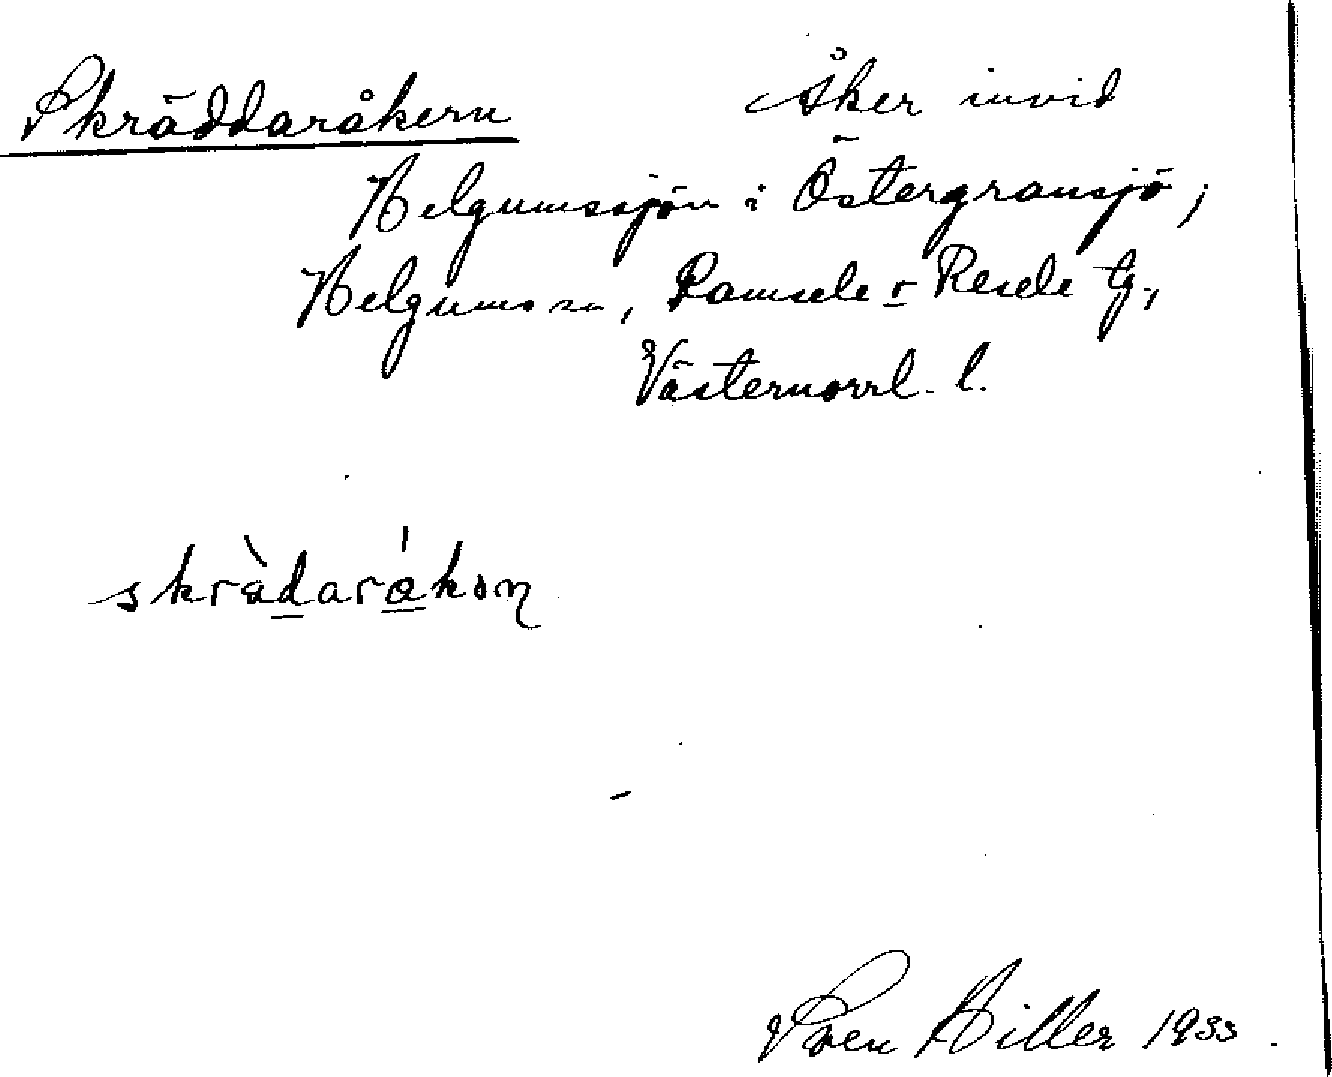 Skräddaråkern Åker invid
Helgumssjön i Östergransjö,
Helgums sn, Ramsele o Resele tg.,
Västernorrl. l.
skràdarákon
Sven Hiller 1933.